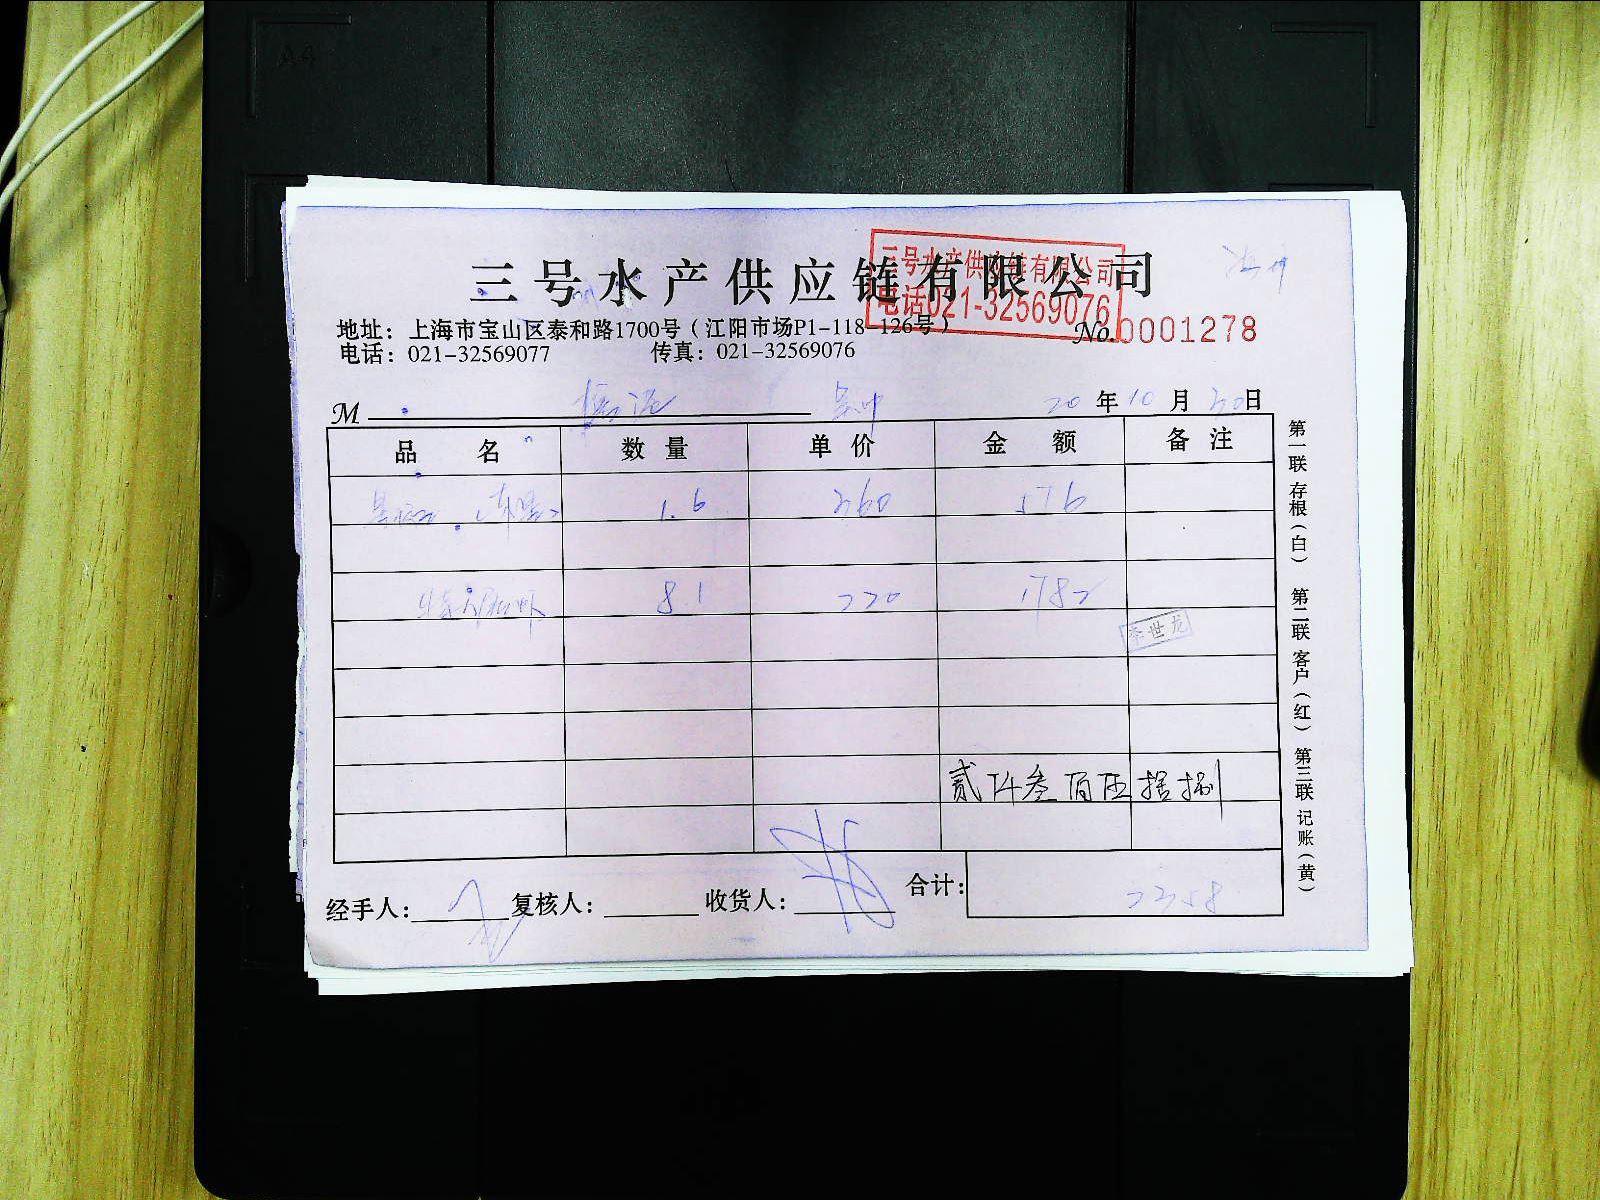 三号水产供应链有限公司
三号水产供应链有限公司
电话021-32569076
地址：上海市宝山区泰和路1700号（江阳市场P1-118-126号）
No.0001278
电话：021-32569077 传真：021-32569076
M 20年10月30日
品名 数量 单价 金额 备注
1.6 360 576
8.1 220 1782
李世龙
贰仟叁佰伍拾捌
经手人： 复核人： 收货人： 合计： 2358
第一联 存根（白） 第二联 客户（红） 第三联 记账（黄）
A4